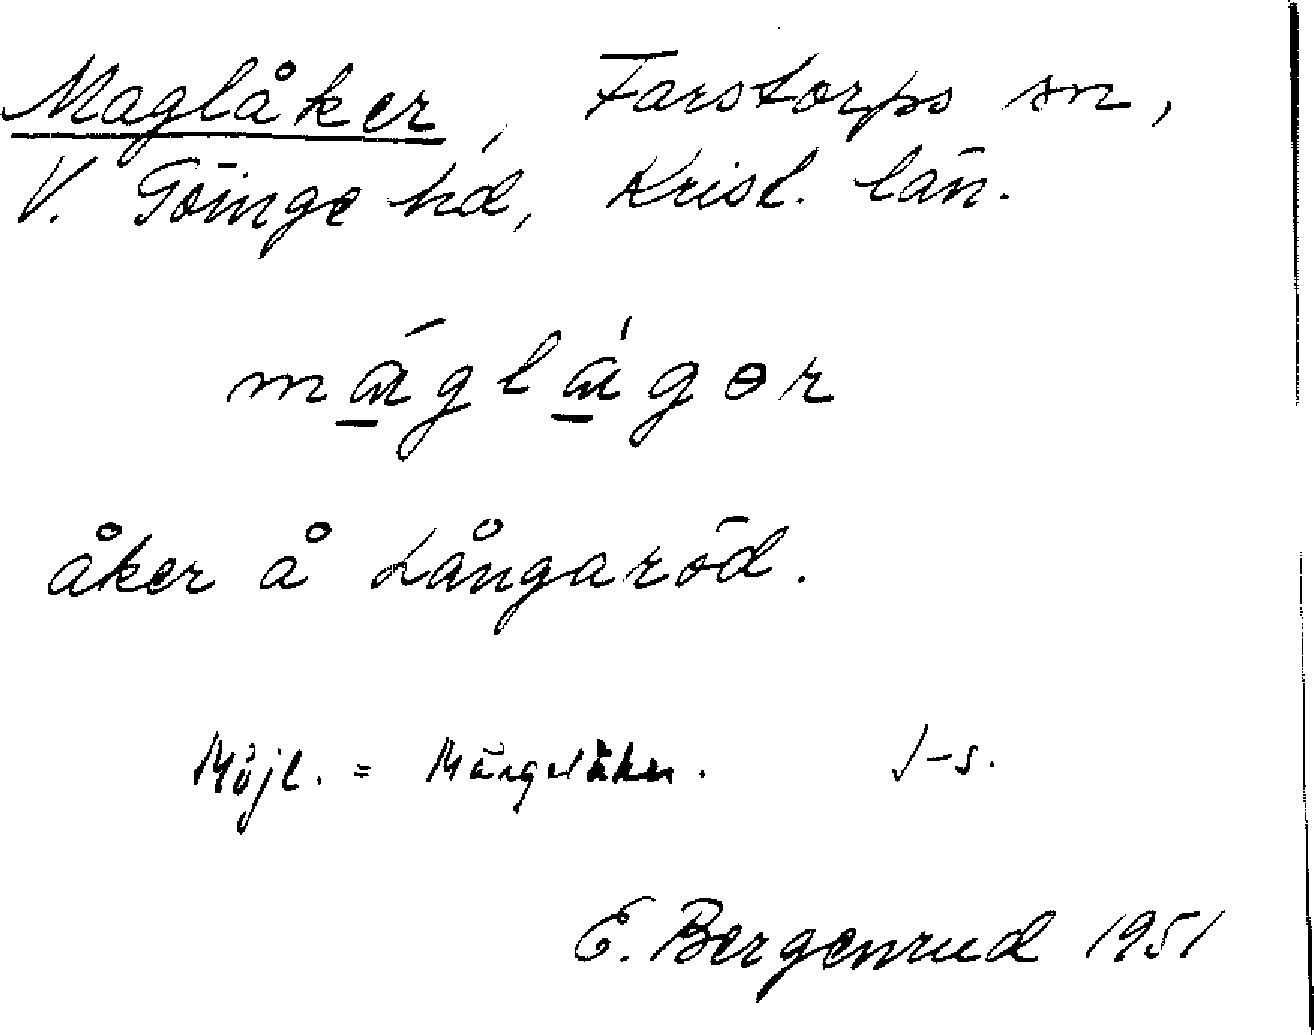 Maglåker, Farstorps sn,
V. Göinge hd, Krist. län.
må̱glå̱gər
åker å Långaröd.
Möjl. = Märgelåker. J-s.
E. Bergenrud 1951